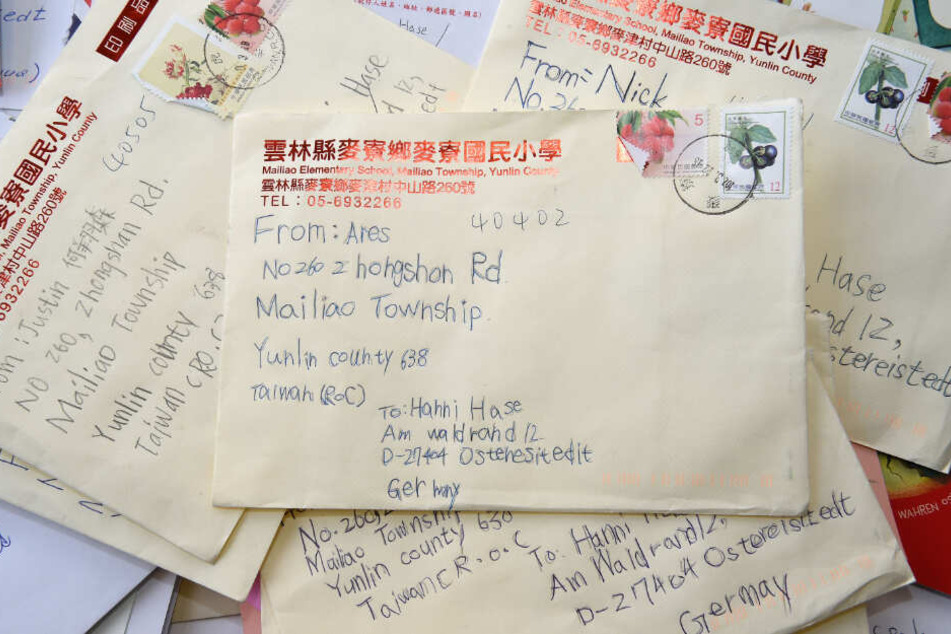 印刷品
Hase
雲林縣麥寮鄉麥寮國民小學
Mailiao Elementary School, Mailiao Township, Yunlin County
雲林縣麥寮鄉麥津村中山路260號
TEL：05-6932266
5
12
From: Ares
40402
No 260 Zhongshan Rd.
Mailiao Township.
Yunlin county 638
Taiwan (RoC)
To: Hanni Hase
Am waldrand 12
D-27404 Osteresitedit
Germany
國民小學
Mailiao Township, Yunlin County
中山路260號
6932266
40505
om: Justin
NO 260, Zhongshan Rd.
Mailiao Township
Yunlin county 638
Taiwan (R.O.C
Hase
麥寮鄉麥寮國民小學
Mailiao Elementary School, Mailiao Township, Yunlin County
麥寮鄉麥津村中山路260號
05-6932266
12
From: Nick
No. 26
Hase
and 12,
stereistedt
No. 260,
Mailiao Township
Yunlin county 638
Taiwan C R.O.C
To: Hanni
Am Waldrand 12,
D-27404 Ostereistedt
Germay
WAHREN OS